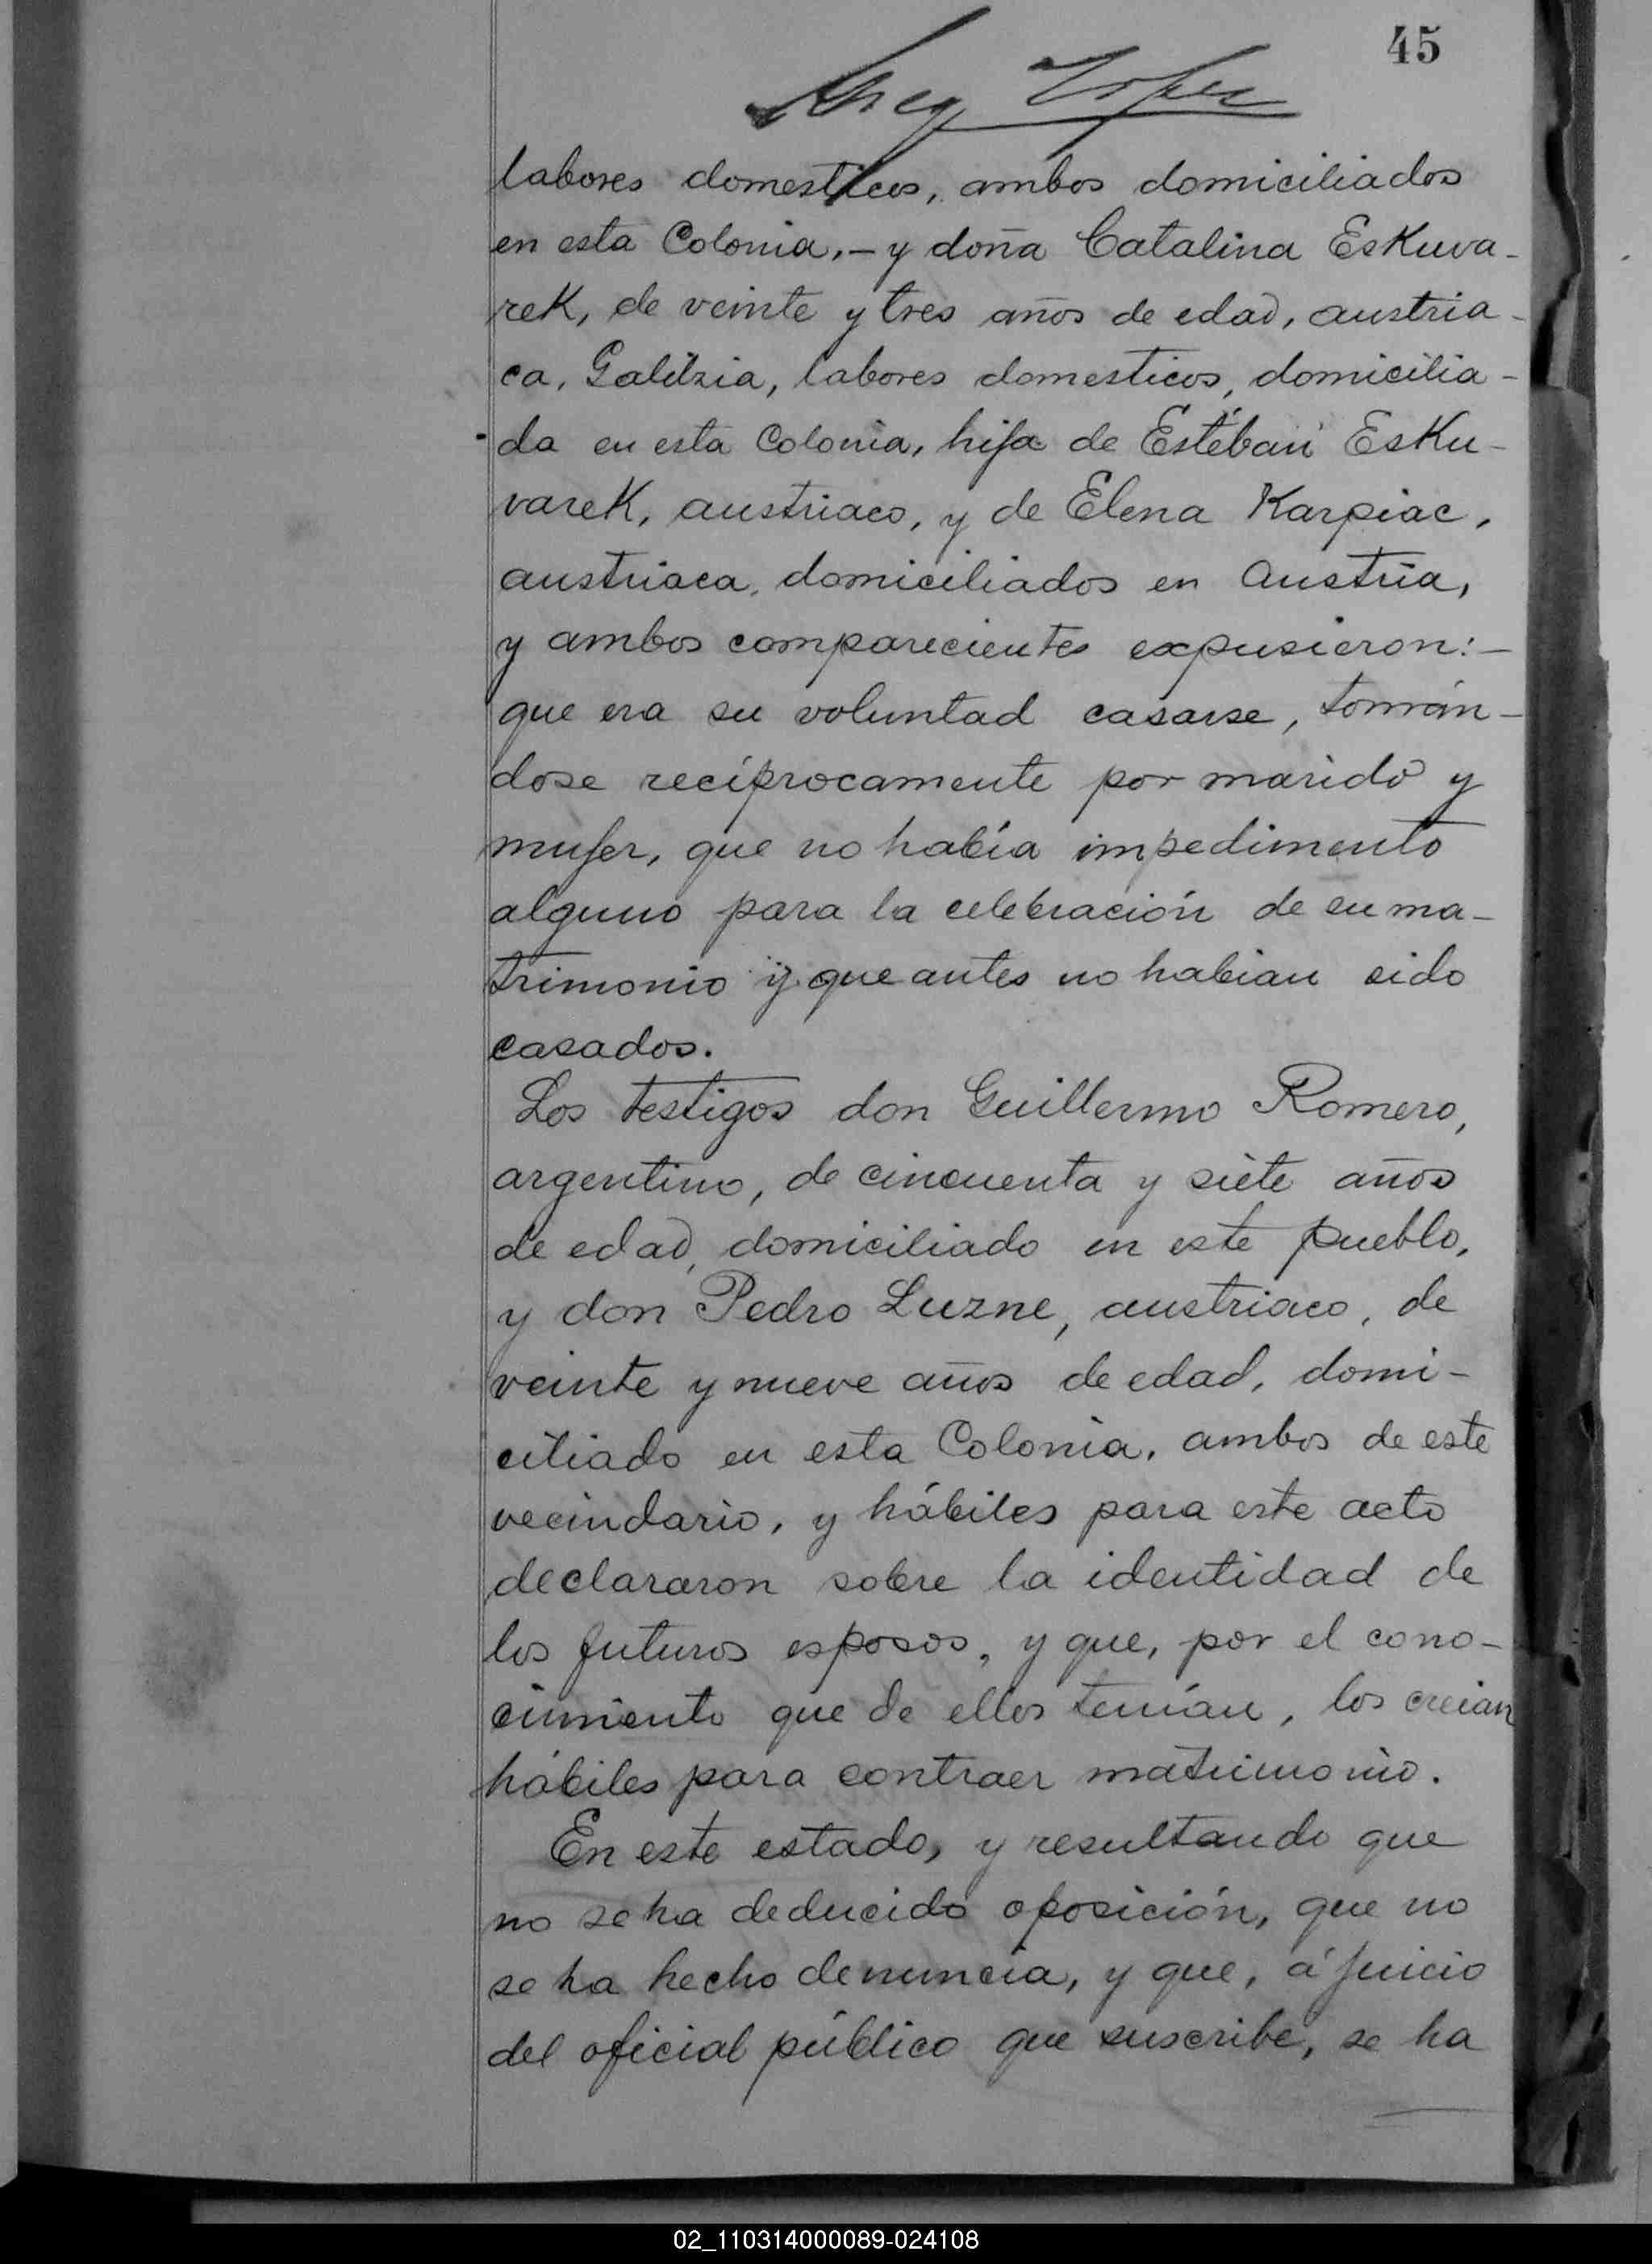 45
labores domesticos, ambos domiciliados
en esta Colonia, – y doña Catalina Eskuva-
rek, de veinte y tres años de edad, austria-
ca, Galitzia, labores domesticos, domicilia-
da en esta Colonia, hija de Estéban Esku-
varek, austriaco, y de Elena Karpiac,
austriaca, domiciliados en Austria,
y ambos comparecientes expusieron: –
que era su voluntad casarse, tomán-
dose recíprocamente por marido y
mujer, que no había impedimento
alguno para la celebración de su ma-
trimonio y que antes no habian sido
casados.
Los testigos don Guillermo Romero,
argentino, de cincuenta y siete años
de edad, domiciliado en este pueblo,
y don Pedro Luzne, austriaco, de
veinte y nueve años de edad, domi-
ciliado en esta Colonia, ambos de este
vecindario, y hábiles para este acto
declararon sobre la identidad de
los futuros esposos, y que, por el cono-
cimiento que de ellos tenían, los creian
hábiles para contraer matrimonio.
En este estado, y resultando que
no se ha deducido oposición, que no
se ha hecho denuncia, y que, á juicio
del oficial público que suscribe, se ha
02_110314000089-024108